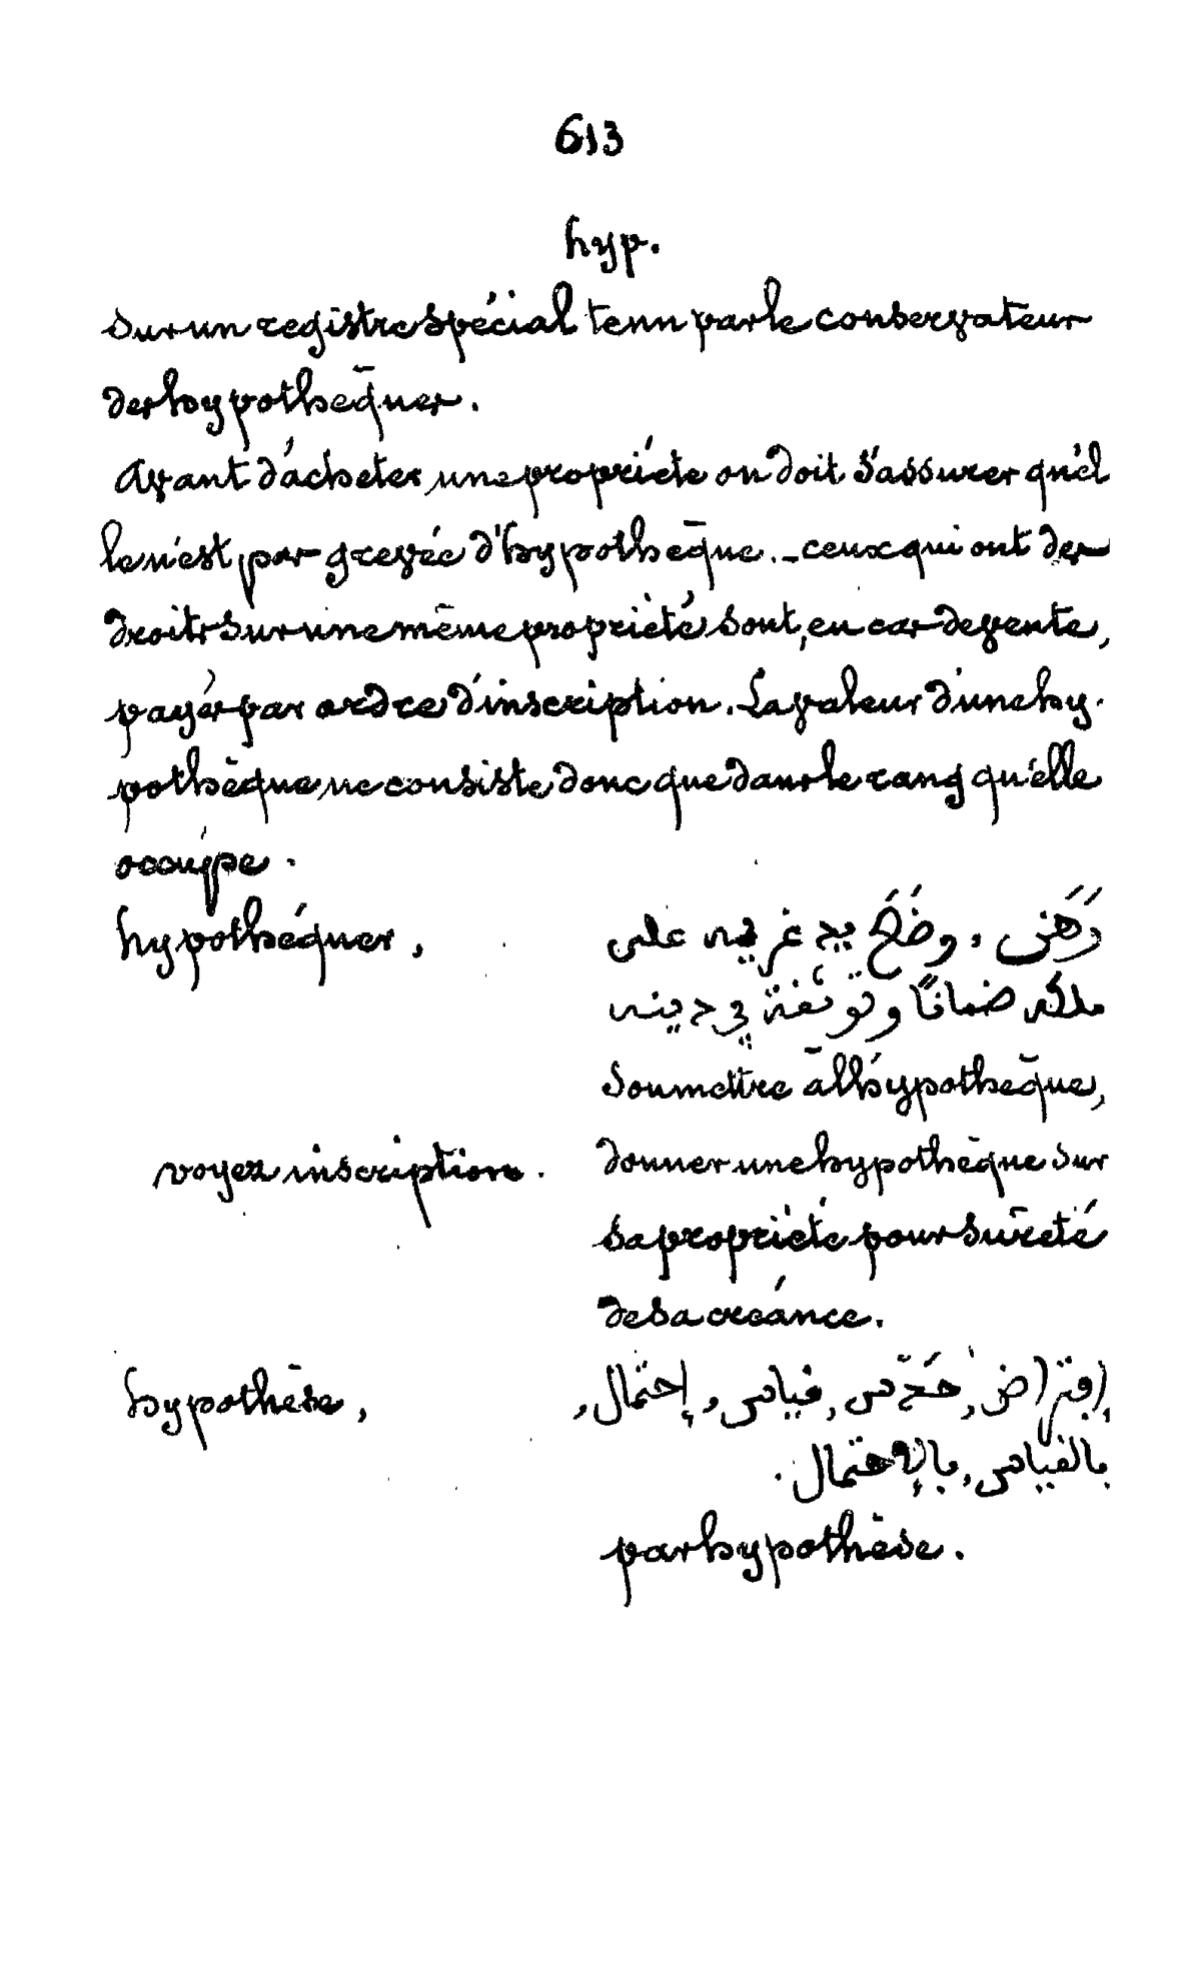 613
hyp.
sur un registre spécial tenu par le conservateur
des hypothèques.
Avant d'acheter une propriété on doit s'assurer qu'el
le n'est pas grevée d'hypothèque. - ceux qui ont des
droits sur une même propriété sont, en cas de vente,
payés par ordre d'inscription. La valeur d'une hy-
pothèque ne consiste donc que dans le rang qu'elle
occupe.
hypothéquer, رَهَنَ, وضَعَ يد غريمه على
ملكه ضمانًا وتوثقة في دينه
Soumettre à l'hypothèque,
voyez inscription. donner une hypothèque sur
sa propriété pour sûreté
de sa créance.
hypothèse, إفتراض, حَدْس, قياس, إحتمال,
بالقياس, بالإحتمال.
par hypothèse.